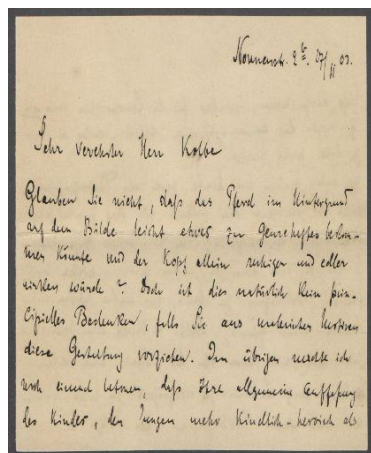 Nonnenstr. 2 27/II 03.
Sehr verehrter Herr Kolbe
Glauben Sie nicht, daß das Pferd im Hintergrund
auf dem Bilde leicht etwas zu Genrehaftes bekom-
men könnte und der Kopf allein ruhiger und edler
wirken würde? Doch ist dies natürlich kein prin-
cipielles Bedenken, falls Sie aus malerischen Motiven
diese Gestaltung vorziehen. Im übrigen möchte ich
noch einmal betonen, daß Ihre allgemeine Auffassung
des Kindes, den Jungen mehr kindlich-heroisch als